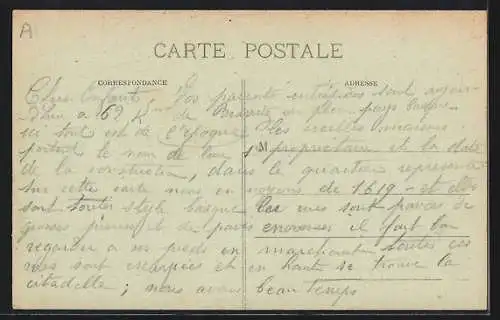 A
CARTE POSTALE
CORRESPONDANCE
ADRESSE
Chers Enfants Vos parents intrépides sont aujour-
d'hui à 62 de Biarritz en plein pays basque
ici tout est de l'époque les vieilles maisons
portent le nom de leur propriétaire et la date
de la construction, dans le quartier représenté
sur cette carte nous en voyons de 1619 - et elles
sont toutes style basque les rues sont pavées de
grosses pierres et de pavés énormes il faut bien
regarder à ses pieds en marchant toutes ces
rues sont escarpées et en haut se trouve la
citadelle ; nous avons beau temps